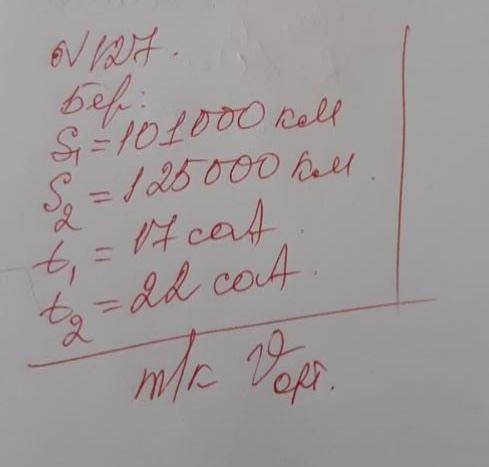 №127.
Бер:
S₁ = 101000 км
S₂ = 125000 км.
t₁ = 17 сағ.
t₂ = 22 сағ.
т/к ϑорт.